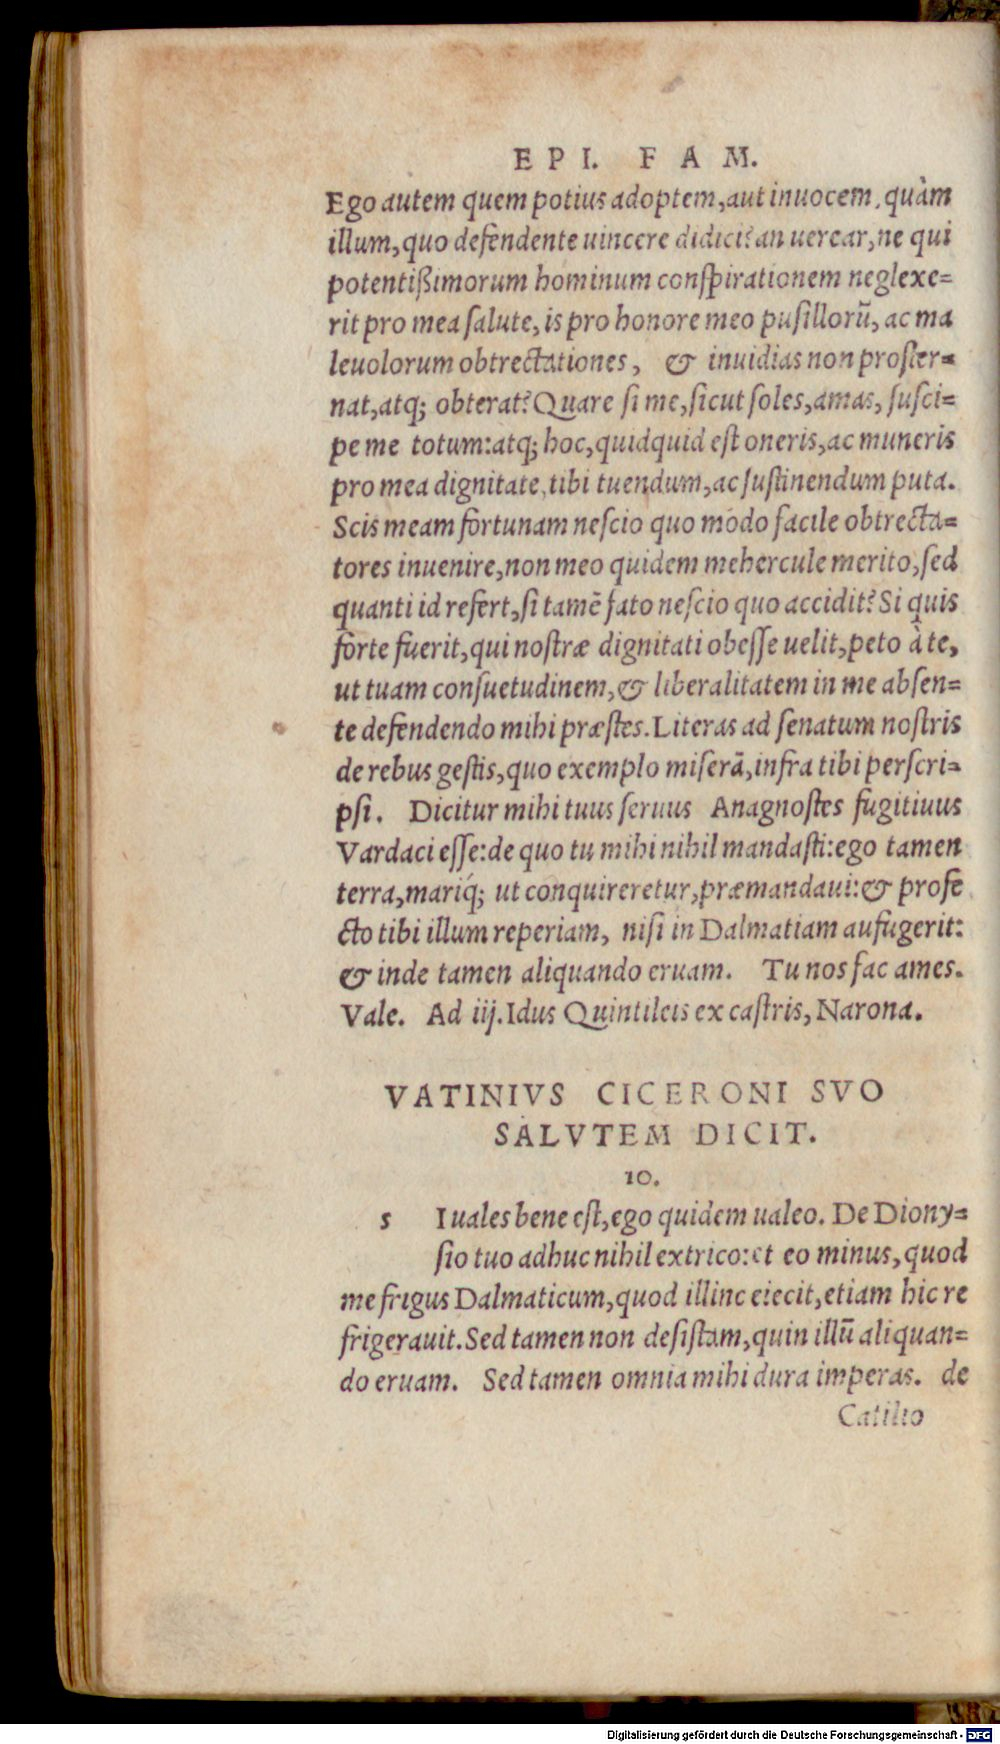 EPI. FAM.
Ego autem quem potius adoptem, aut inuocem, quàm
illum, quo defendente uincere didici? an uerear, ne qui
potentißimorum hominum conſpirationem neglexe=
rit pro mea ſalute, is pro honore meo puſillorū, ac ma
leuolorum obtrectationes, & inuidias non proſter=
nat, atq; obterat? Quare ſi me, ſicut ſoles, amas, ſuſci=
pe me totum: atq; hoc, quidquid eſt oneris, ac muneris
pro mea dignitate, tibi tuendum, ac ſuſtinendum puta.
Scis meam fortunam neſcio quo modo facile obtrecta=
tores inuenire, non meo quidem mehercule merito, ſed
quanti id refert, ſi tamē fato neſcio quo accidit? Si quis
forte fuerit, qui noſtræ dignitati obeſſe uelit, peto à te,
ut tuam conſuetudinem, & liberalitatem in me abſen=
te defendendo mihi præſtes. Literas ad ſenatum noſtris
de rebus geſtis, quo exemplo miſerā, infra tibi perſcri=
pſi. Dicitur mihi tuus ſeruus Anagnoſtes fugitiuus
Vardaci eſſe: de quo tu mihi nihil mandaſti: ego tamen
terra, mariq́; ut conquireretur, præmandaui: & profe
cto tibi illum reperiam, niſi in Dalmatiam aufugerit:
& inde tamen aliquando eruam. Tu nos fac ames.
Vale. Ad iij. Idus Quintileis ex caſtris, Narona.
VATINIVS CICERONI SVO
SALVTEM DICIT.
10.
s I uales bene eſt, ego quidem ualeo. De Diony=
ſio tuo adhuc nihil extrico: et eo minus, quod
me frigus Dalmaticum, quod illinc eiecit, etiam hic re
frigerauit. Sed tamen non deſiſtam, quin illū aliquan=
do eruam. Sed tamen omnia mihi dura imperas. de
Catilio
Digitalisierung gefördert durch die Deutsche Forschungsgemeinschaft - DFG